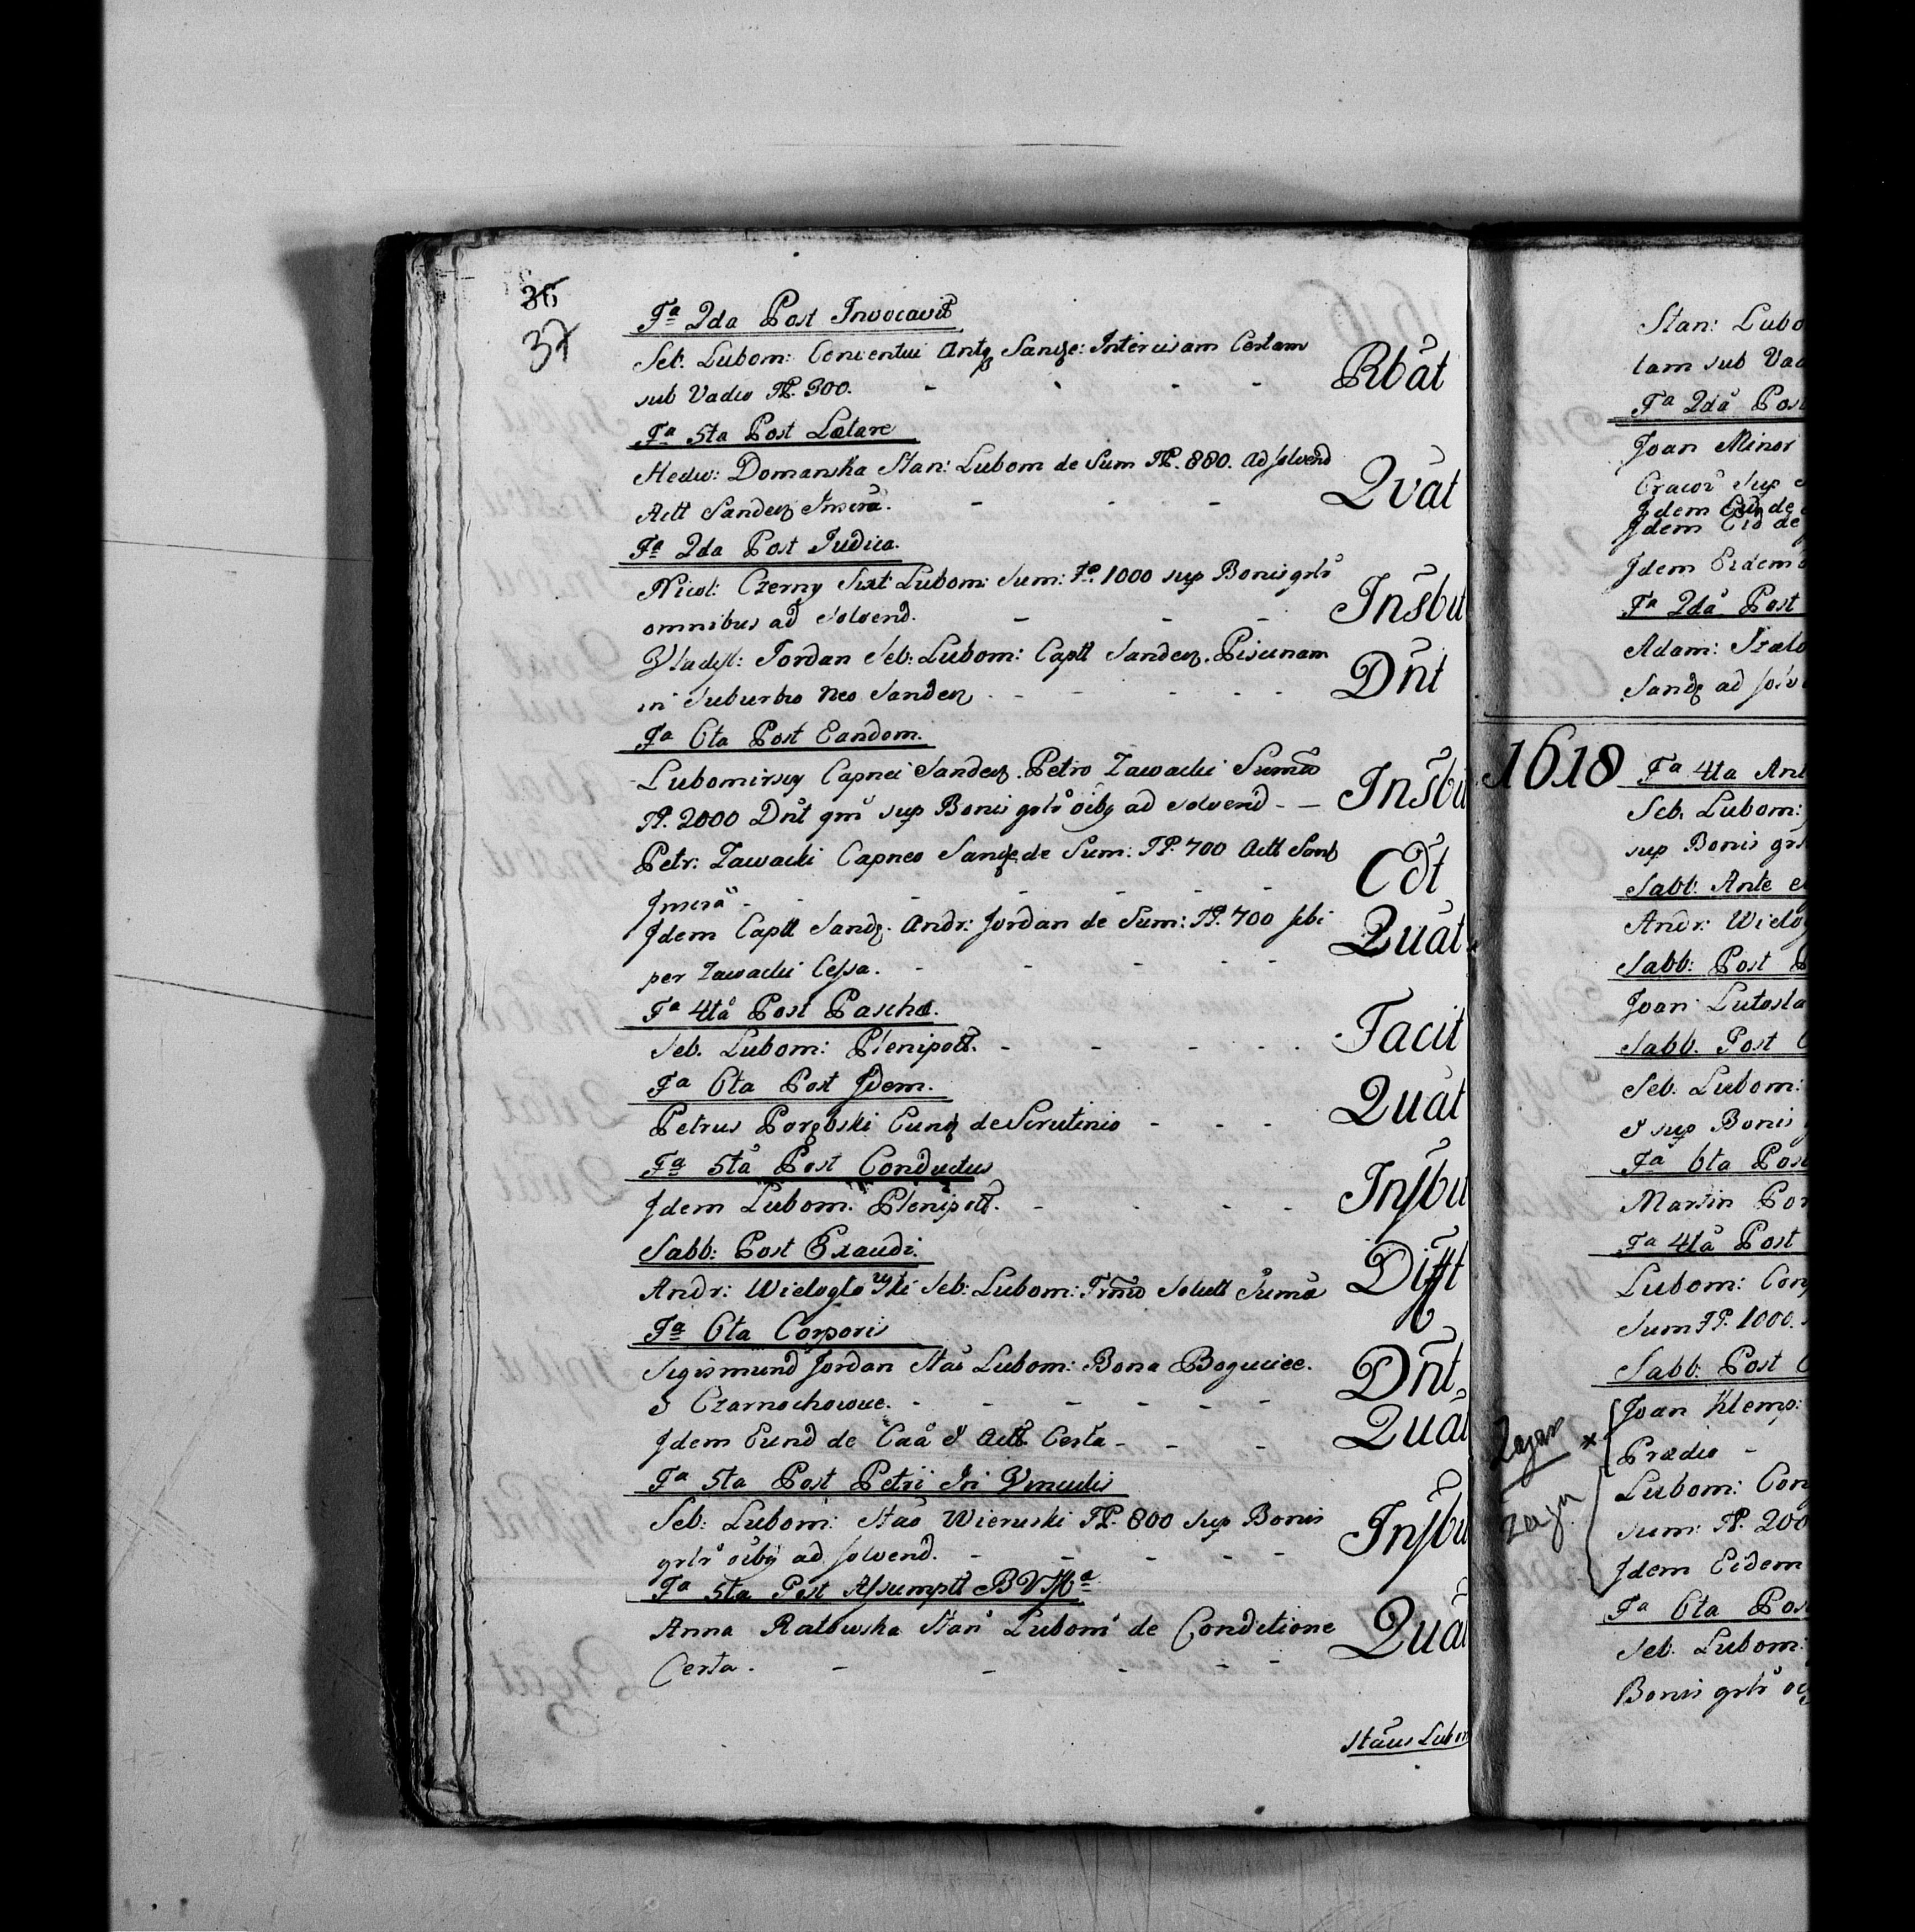 36
37
Fa 2da Post Invocavit
Seb. Lubom: Conventui Antq Sande: Intercisam Certam
sub Vadio FP. 300. Rbat
Fa 5ta Post Lætare
Hedw: Domanska Stan: Lubom de Sum FP. 880. ad solvend
Actt Sandecz Inscrã. Qvat
Fa 2da Post Judica.
Nicol: Czerny Sixt Lubom: Sum: FP. 1000 sup Bonis grlr
omnibus ad solvend. Insbu
Vladisl: Jordan Seb: Lubom: Captt Sandecz. Piscinam
in Suburbio Neo Sandecz Dnt
Fa 6ta Post Eandem.
Lubomirscy Capnei Sandecz. Petro Zawacki Sumã
FP. 2000 Dnt qm sup Bonis grlr oibq ad solvend Insbu
Petr: Zawacki Capneo Sande de Sum: FP. 700 Actt Sand
Inscrã Cdt
Idem Captt Sandz. Andr: Jordan de Sum: FP. 700 sibi
per Zawacki Cessa. Quat
Fa 4ta Post Pascha.
Seb. Lubom: Plenipott. Facit
Fa 6ta Post Idem.
Petrus Porębski Eund de Scrutinio Quat
Fa 5ta Post Conductus
Idem Lubom: Plenipott. Insbu
Sabb: Post Exaudi.
Andr: Wieloglowski Seb: Lubom: Trm̃ Solutt Sumã Difft
Fa 6ta Corporis
Sigismund Jordan Stao Lubom: Bona Boguciee.
& Czarnochowue. Dnt
Idem Eund de Caa & Actt Certa Quat
Fa 5ta Post Petri In Vinculis
Seb: Lubom: Stao Wieruski FP. 800 sup Bonis
grlr oibq ad solvend. Insbu
Fa 5ta Post Assumptt BVMa
Anna Ratowska Stan Lubom de Conditione
Certa. Quat
Staus Lubom
Stan: Lubo
tam sub Vad
Fa 2da Post
Joan Minor
Cracov Sup
Idem Eid de
Idem Eid de
Idem Eidem
Fa 2da Post
Adam:
Sandz ad solv
1618 Fa 4ta Ant
Seb. Lubom:
sup Bonis grl
Sabb. Ante
Andr: Wielo
Sabb: Post
Joan Lutosla
Sabb. Post
Seb. Lubom:
& sup Bonis
Fa 6ta Pos
Martin Por
Fa 4ta Post
Lubom: Con
Sum FP. 1000.
Sabb. Post
Joan Klemp:
Prædio
Lubom: Con
Sum: FP. 200
Idem Eidem
Fa 6ta Pos
Seb. Lubom:
Bonis grlr